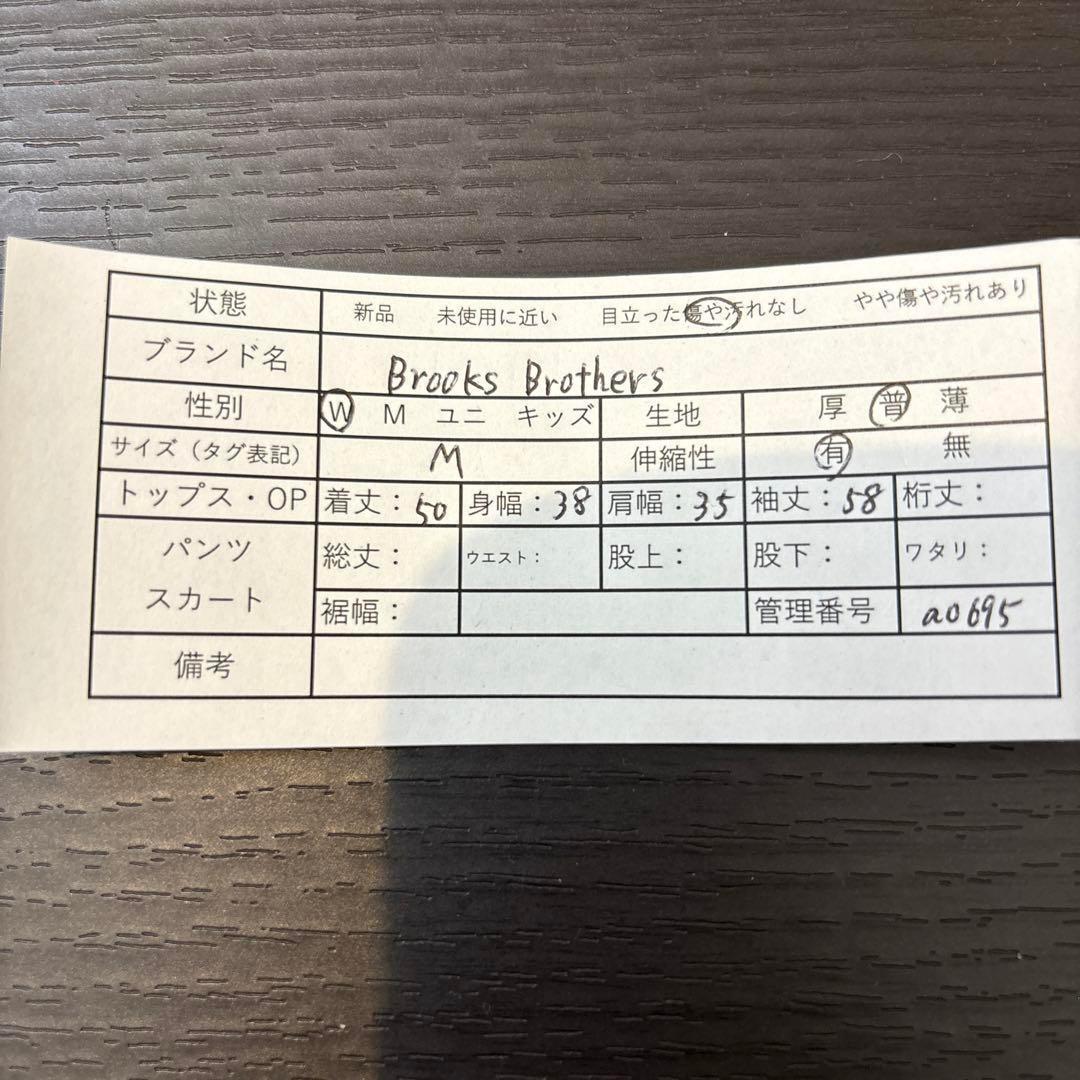 状態 新品 未使用に近い 目立った傷や汚れなし やや傷や汚れあり
ブランド名 Brooks Brothers
性別 W M ユニ キッズ 生地 厚 普 薄
サイズ（タグ表記） M 伸縮性 有 無
トップス・OP 着丈：50 身幅：38 肩幅：35 袖丈：58 裄丈：
パンツ スカート 総丈： ウエスト： 股上： 股下： ワタリ：
裾幅： 管理番号 a0695
備考